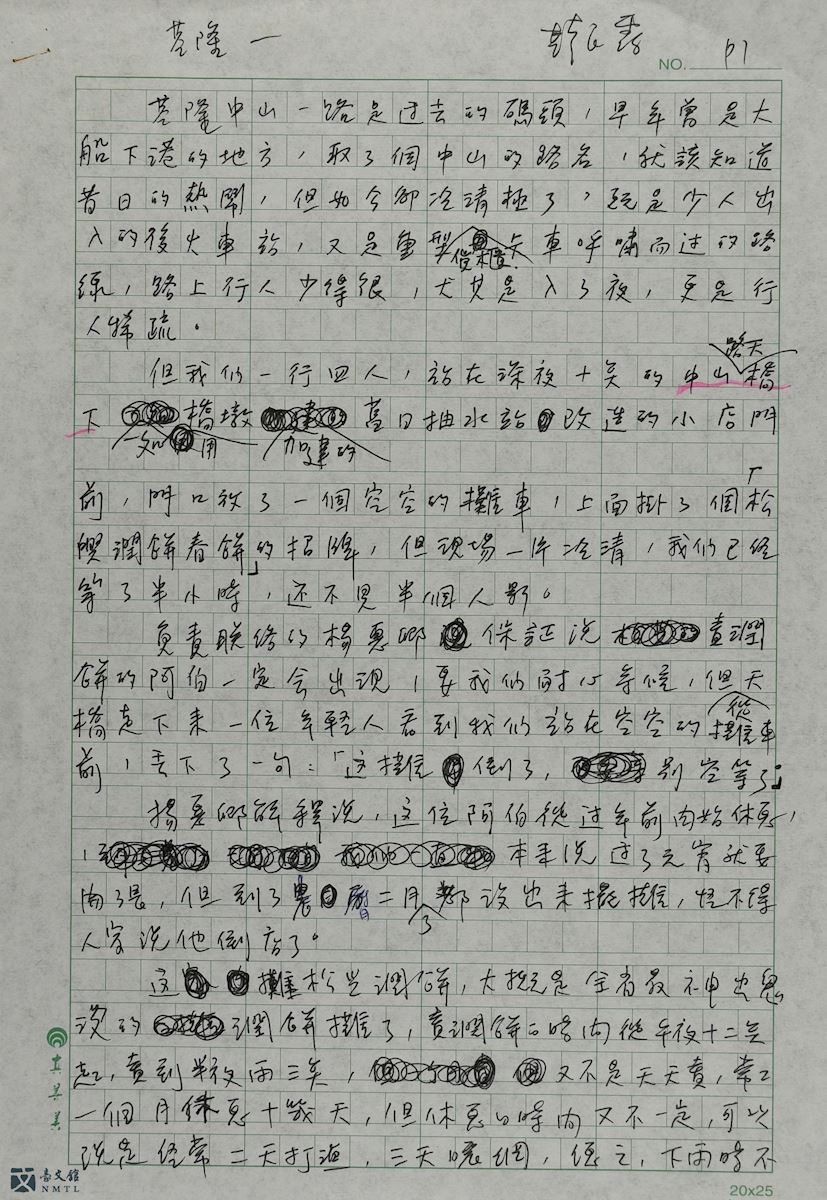 基隆一 韓良露
NO. P1
基隆中山一路是过去的碼頭，早年曾是大
船下港的地方，取了個中山的路名，就該知道
昔日的熱鬧，但如今卻冷清極了，既是少人出
入的後火車站，又是重型貨櫃卡車呼嘯而过的路
線，路上行人少得很，尤其是入了夜，更是行
人稀疏。
但我们一行四人，站在深夜十点的中山路天橋
下 橋墩加建的舊日抽水站改造的小店門
前，門口放了一個空空的攤車，上面掛了個「松
興潤餅春餅」的招牌，但現場一片冷清，我们已经
等了半小時，还不見半個人影。
負責联络的楊惠卿保証说賣潤
餅的阿伯一定会出現，要我们耐心等候，但從天
橋走下来一位年輕人看到我们站在空空的攤車
前，丢下了一句：「这攤倒了，別空等了」
楊惠卿解釋说，这位阿伯從过年前開始休息，
本来说过了元宵就要
開了張，但到了農曆二月了都没出来擺攤，怪不得
人家说他倒店了。
这攤松興潤餅，大概是全省最神出鬼
没的潤餅攤了，賣潤餅的時間從午夜十二点
起，賣到半夜兩三点，又不是天天賣，常常
一個月休息十幾天，但休息的時間又不一定，可以
说是经常二天打漁，三天曬網，總之，下雨時不
直美美
臺文館
NMTL
20x25